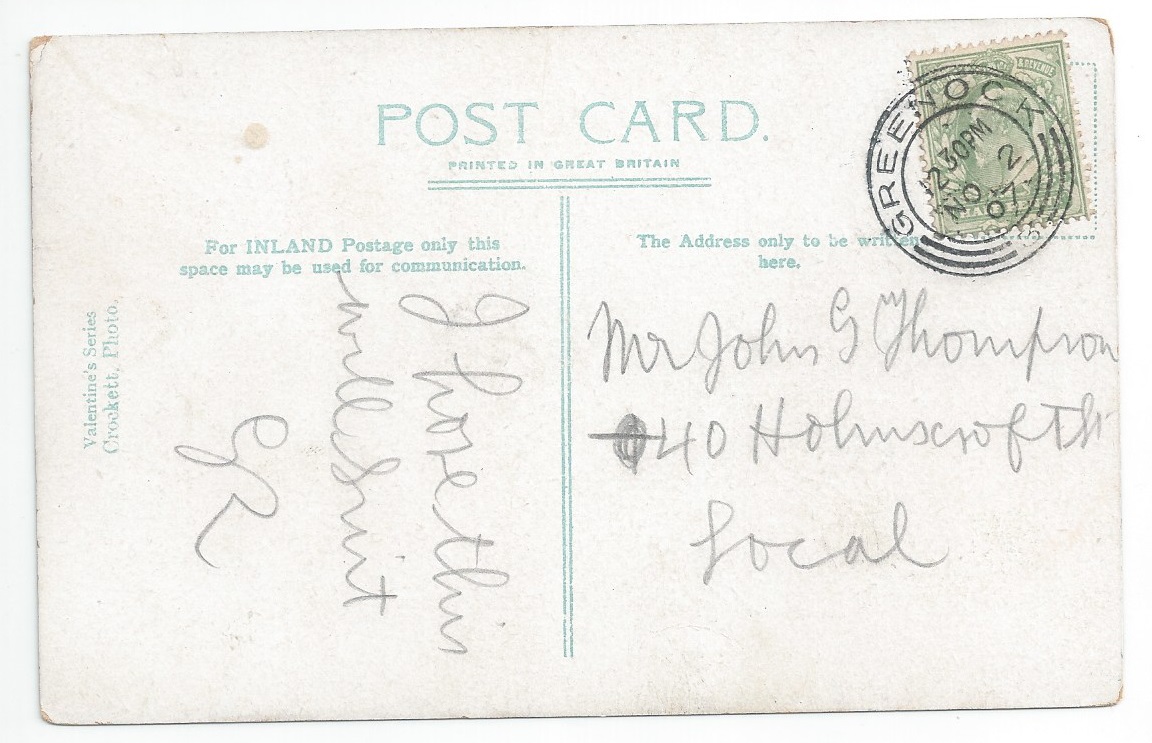 POST CARD.
PRINTED IN GREAT BRITAIN
For INLAND Postage only this
space may be used for communication.
The Address only to be written
here.
Valentine's Series
Crockett, Photo.
& REVENUE
GREENOCK
1230PM
NO 2
07
I hope this
will Suit
GR
Mr John G Thompson
40 Holmscroft St
Local